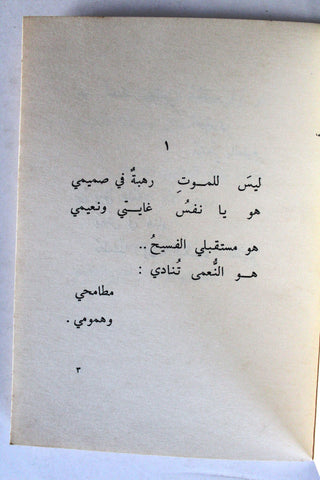 ١
ليسَ للمـوتِ رهبةٌ في صميمي
هو يا نفسُ غايتي ونعيمي
هو مستقبلي الفسيحُ ..
هـو النُّعمى تُنادي :
مطامحي
وهمومي .
٣